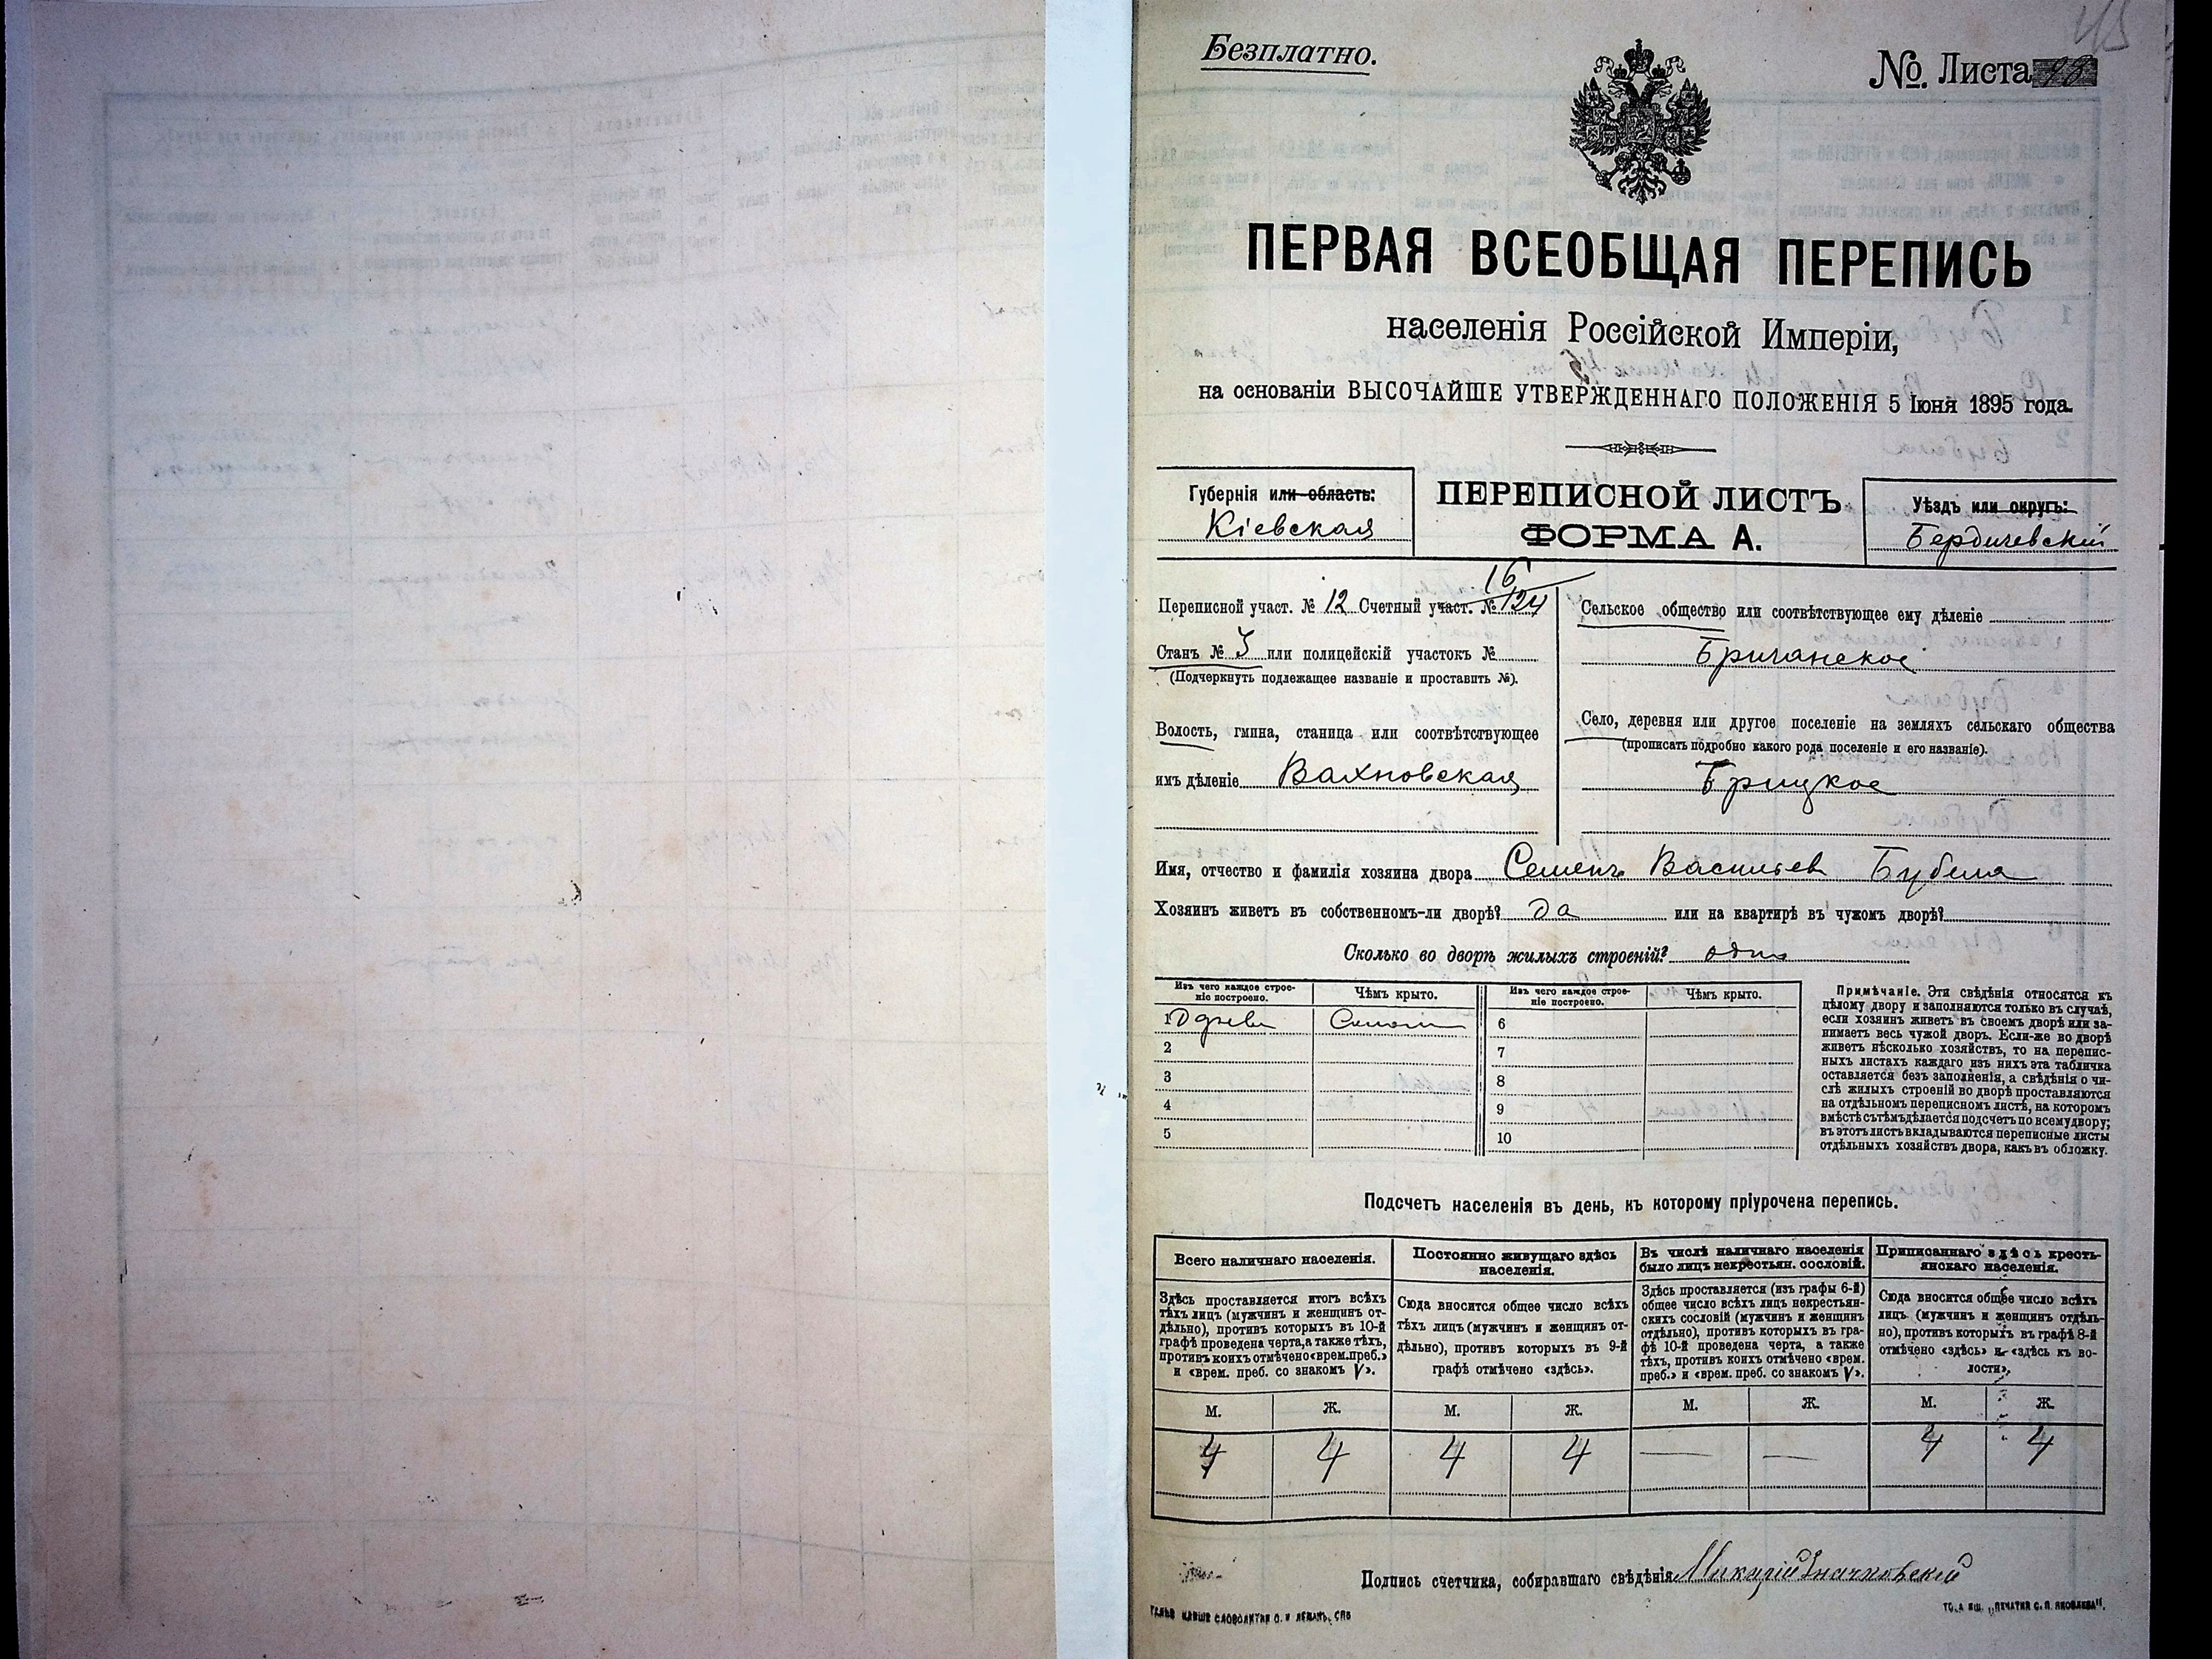 Безплатно.
№ Листа 98
45
ПЕРВАЯ ВСЕОБЩАЯ ПЕРЕПИСЬ
населенія Россійской Имперіи,
на основаніи ВЫСОЧАЙШЕ УТВЕРЖДЕННАГО ПОЛОЖЕНІЯ 5 Іюня 1895 года.
Губернія или область:
Кіевская
ПЕРЕПИСНОЙ ЛИСТЪ
ФОРМА А.
Уѣздъ или округъ:
Бердичевскій
16
Переписной участ. № 12 Счетный участ. № 124
Станъ № 3 или полицейскій участокъ №
(Подчеркнуть подлежащее названіе и проставить №).
Волость, гмина, станица или соотвѣтствующее
имъ дѣленіе Вахновская
Сельское общество или соотвѣтствующее ему дѣленіе
Бричанское
Село, деревня или другое поселеніе на земляхъ сельскаго общества
(прописать подробно какого рода поселеніе и его названіе).
Брицкое
Имя, отчество и фамилія хозяина двора Семенъ Васильев Бубела
Хозяинъ живетъ въ собственномъ-ли дворѣ? да или на квартирѣ въ чужомъ дворѣ?
Сколько во дворѣ жилыхъ строеній? один
Изъ чего каждое строе-
ніе построено.
Чѣмъ крыто.
Изъ чего каждое строе-
ніе построено.
Чѣмъ крыто.
1 Солом 6
2 7
3 8
4 9
5 10
Примѣчаніе. Эти свѣдѣнія относятся къ
цѣлому двору и заполняются только въ случаѣ,
если хозяинъ живетъ въ своемъ дворѣ или за-
нимаетъ весь чужой дворъ. Если-же во дворѣ
живетъ нѣсколько хозяйствъ, то на перепис-
ныхъ листахъ каждаго изъ нихъ эта табличка
оставляется безъ заполненія, а свѣдѣнія о чи-
слѣ жилыхъ строеній во дворѣ проставляются
на отдѣльномъ переписномъ листѣ, на которомъ
вмѣстѣ съ тѣмъ дѣлается подсчетъ по всему двору;
въ этотъ листъ вкладываются переписные листы
отдѣльныхъ хозяйствъ двора, какъ въ обложку.
Подсчетъ населенія въ день, къ которому пріурочена перепись.
Всего наличнаго населенія.
Постоянно живущаго здѣсь
населенія.
Въ числѣ наличнаго населенія
было лицъ некрестьян. сословій.
Приписаннаго здѣсь кресть-
янскаго населенія.
Здѣсь проставляется итогъ всѣхъ
тѣхъ лицъ (мужчинъ и женщинъ от-
дѣльно), противъ которыхъ въ 10-й
графѣ проведена черта, а также тѣхъ,
противъ коихъ отмѣчено «врем. преб.»
и «врем. преб. со знакомъ V».
Сюда вносится общее число всѣхъ
тѣхъ лицъ (мужчинъ и женщинъ от-
дѣльно), противъ которыхъ въ 9-й
графѣ отмѣчено «здѣсь».
Здѣсь проставляется (изъ графы 6-й)
общее число всѣхъ лицъ некрестьян-
скихъ сословій (мужчинъ и женщинъ
отдѣльно), противъ которыхъ въ гра-
фѣ 10-й проведена черта, а также
тѣхъ, противъ коихъ отмѣчено «врем.
преб.» и «врем. преб. со знакомъ V».
Сюда вносится общее число всѣхъ
лицъ (мужчинъ и женщинъ отдѣль-
но), противъ которыхъ въ графѣ 8-й
отмѣчено «здѣсь» и «здѣсь къ во-
лости».
М. Ж. М. Ж. М. Ж. М. Ж.
4 4 4 4 — — 4 4
Подпись счетчика, собиравшаго свѣдѣнія